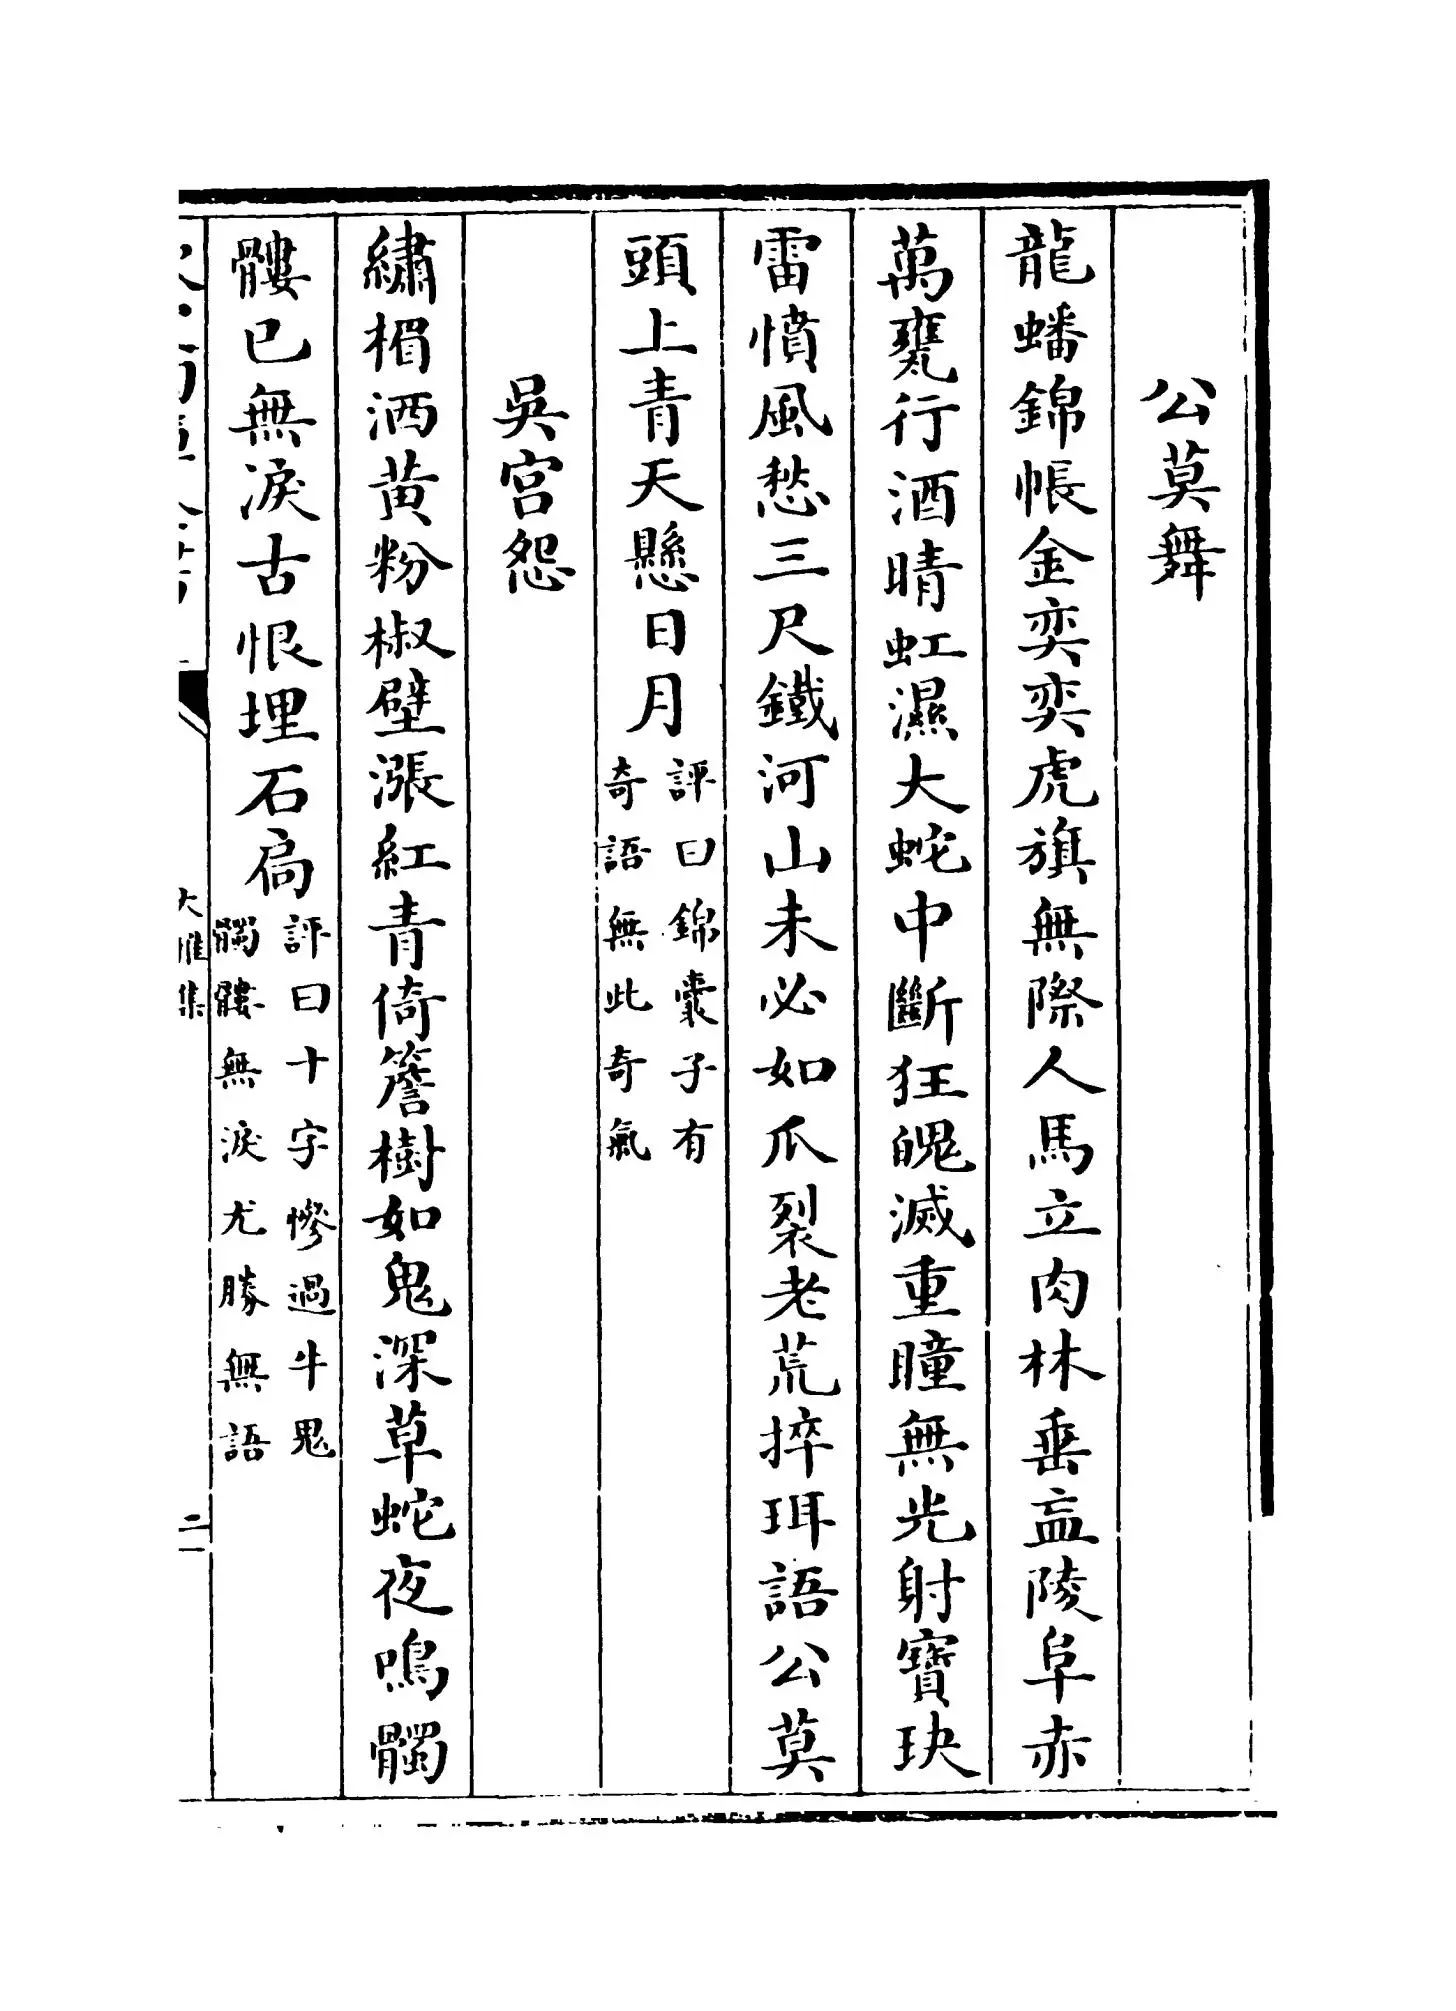 公莫舞
龍蟠錦帳金奕奕虎旗無際人馬立肉林垂盃陵阜赤
萬甕行酒晴虹濕大蛇中斷狂魄滅重瞳無光射寶玦
雷憤風愁三尺鐵河山未必如爪裂老荒捽珥語公莫
頭上青天懸日月
評曰錦囊子有
奇語無此奇氣
吳宮怨
繡楣洒黃粉椒壁漲紅青倚簷樹如鬼深草蛇夜鳴髑
髏已無淚古恨埋石扃
評曰十字慘過牛鬼
髑髏無淚尤勝無語
大雅集
二